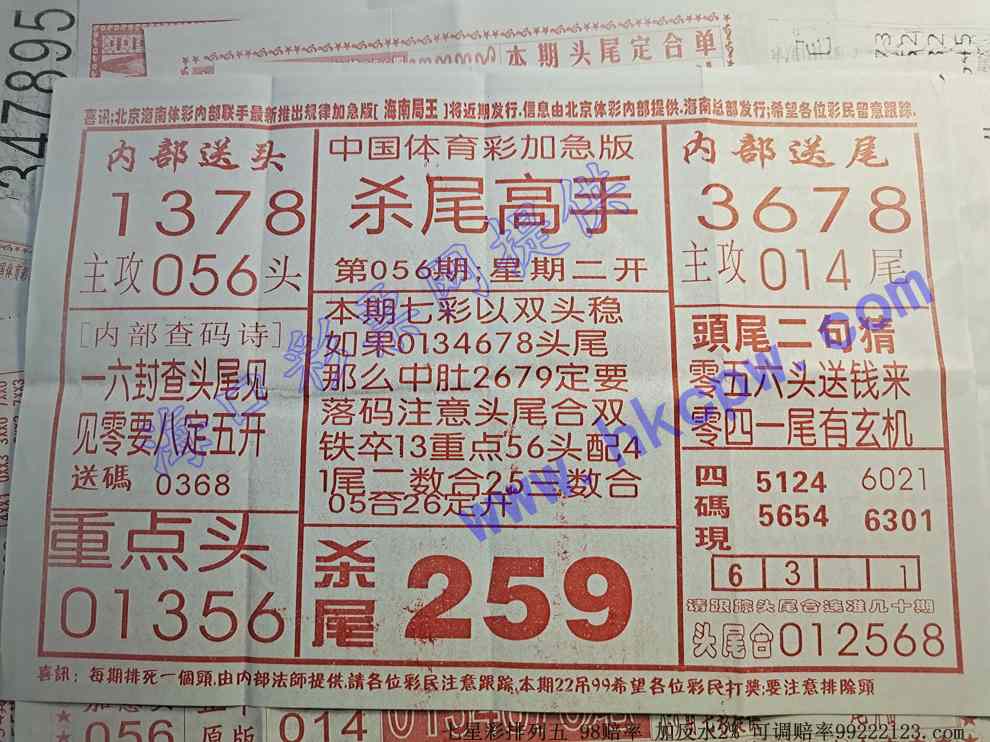 347895
本期头尾定合单
喜讯:北京海南体彩内部联手最新推出规律加急版[海南局王]将近期发行.信息由北京体彩内部提供.海南总部发行;希望各位彩民留意跟踪.
内部送头
1378
主攻056头
中国体育彩加急版
杀尾高手
第056期;星期二开
内部送尾
3678
主攻014尾
[内部查码诗]
一六封查头尾见
见零要八定五开
送碼 0368
本期七彩以双头稳
如果0134678头尾
那么中肚2679定要
落码注意头尾合双
铁卒13重点56头配4
1尾二数合25三数合
05合26定开
頭尾二句猜
零五六头送钱来
零四一尾有玄机
四碼現
5124 6021
5654 6301
6 3 1
请跟踪头尾合连准几十期
头尾合012568
重点头
01356
杀尾
259
喜訊:每期排死一個頭.由内部法师提供.請各位彩民注意跟踪.本期22吊99希望各位彩民打獎;要注意排除頭
海口彩票网提供
www.hkcpw.com
014
七星彩排列五 98赔率 加反水2% 可调赔率99222123.com